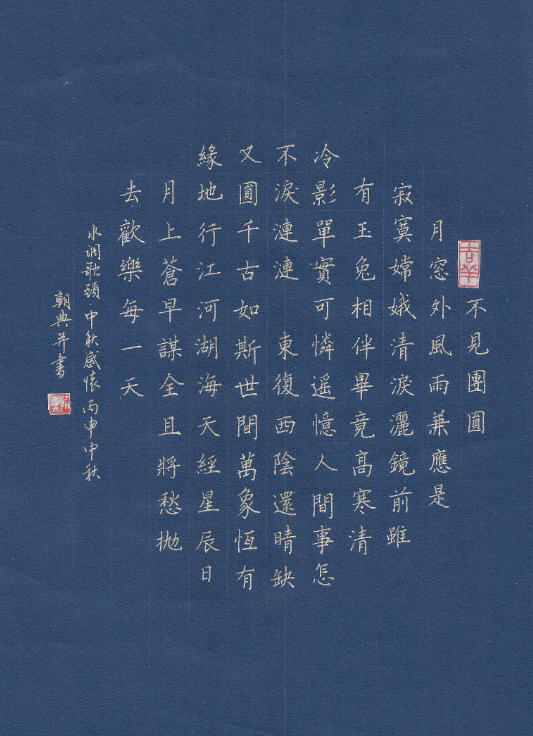 吉羊
不見團圓
月窓外風雨兼應是
寂寞嫦娥清淚灑鏡前雖
有玉兔相伴畢竟高寒清
冷影單實可憐遥憶人間事怎
不淚漣漣 東復西陰還晴缺
又圓千古如斯世間萬象恆有
緣地行江河湖海天經星辰日
月上蒼早謀全且將愁拋
去歡樂每一天
水調歌頭 中秋感懷 丙申中秋
朝典并書